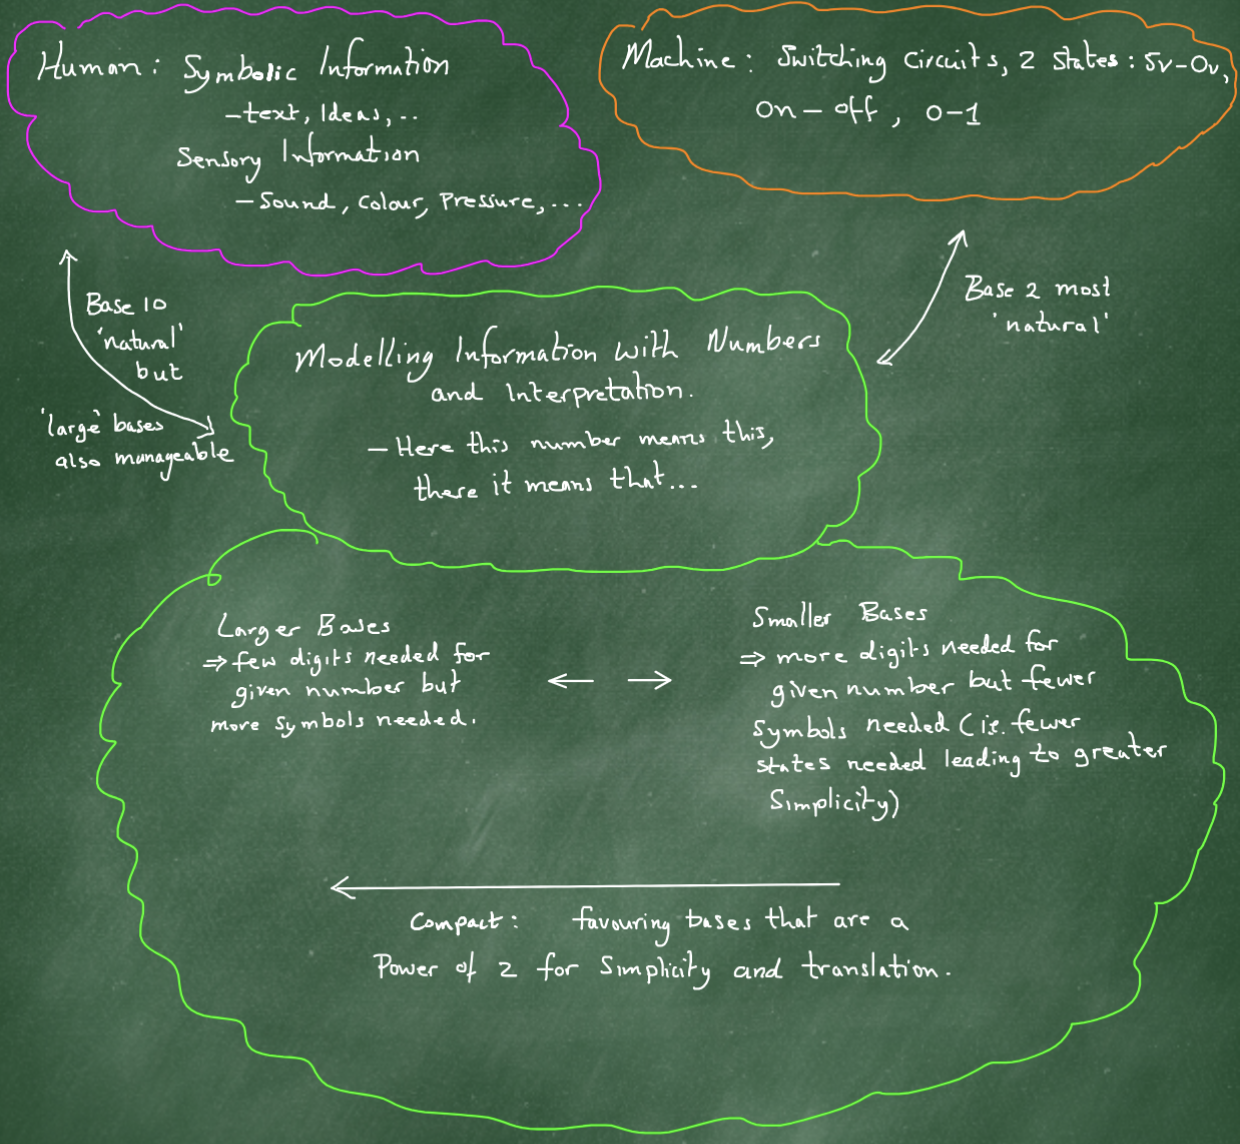 Human: Symbolic Information
-text, Ideas,..
Sensory Information
- Sound, Colour, Pressure,...
Machine: Switching Circuits, 2 States: 5v-0v,
on - off, 0-1
Base 10
'natural'
but
'large' bases
also manageable
Base 2 most
'natural'
Modelling Information with Numbers
and Interpretation.
- Here this number means this,
there it means that...
Larger Bases
⇒ few digits needed for
given number but
more symbols needed.
Smaller Bases
⇒ more digits needed for
given number but fewer
symbols needed (i.e. fewer
states needed leading to greater
Simplicity)
Compact: favouring bases that are a
Power of 2 for Simplicity and translation.